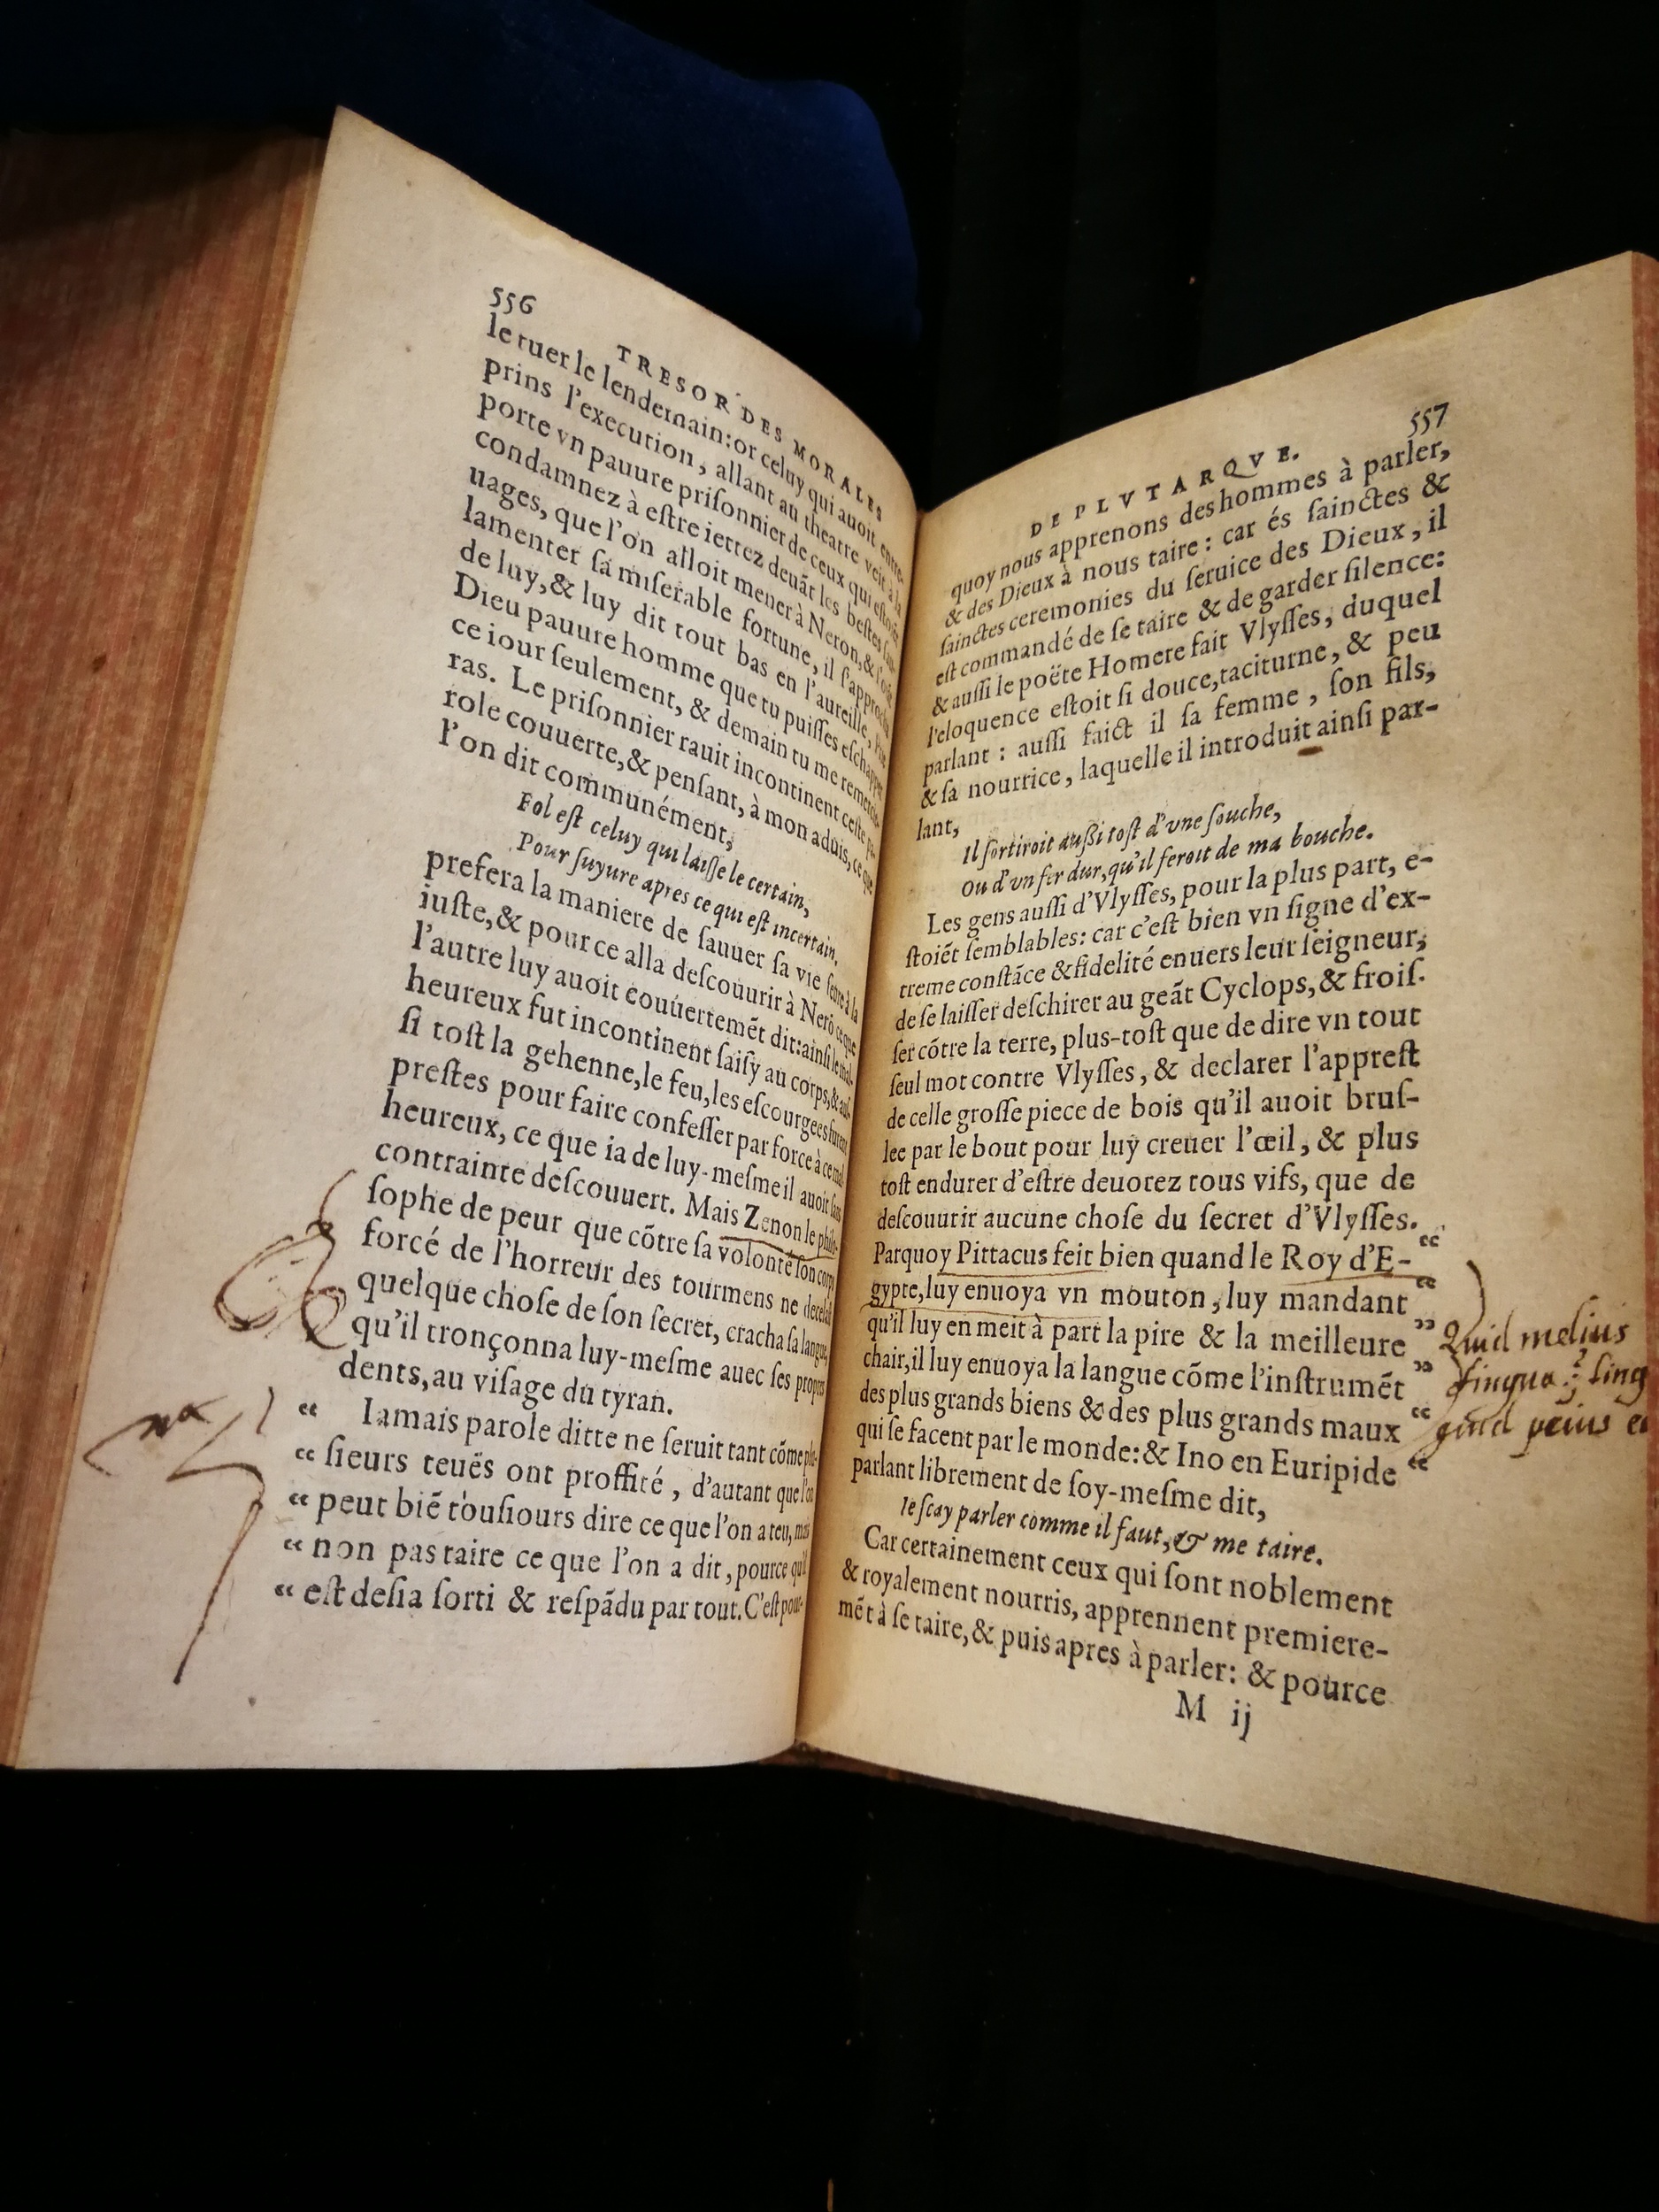 556
TRESOR DES MORALES
le tuer le lendemain: or celuy qui auoit entre-
prins l'execution, allant au theatre veit à la
porte vn pauure prisonnier de ceux qui estoiẽt
condamnez à estre iettez deuãt les bestes sau-
uages, que l'on alloit mener à Neron, &
lamenter sa miserable fortune, il s'approcha
de luy, & luy dit tout bas en l'aureille, Prie
Dieu pauure homme que tu puisses eschapper
ce iour seulement, & demain tu me remercie-
ras. Le prisonnier rauit incontinent ceste pa-
role couuerte, & pensant, à mon aduis, ce que
l'on dit communément,
Fol est celuy qui laisse le certain,
Pour suyure apres ce qui est incertain,
prefera la maniere de sauuer sa vie seure à la
iuste, & pour ce alla descouurir à Nerõ ce que
l'autre luy auoit couuertemẽt dit: ainsi le mal-
heureux fut incontinent saisy au corps, & aus-
si tost la gehenne, le feu, les escourgees furent
prestes pour faire confesser par force à ce mal-
heureux, ce que ia de luy-mesme il auoit sans
contrainte descouuert. Mais Zenon le philo-
sophe de peur que cõtre sa volonté son corps
forcé de l'horreur des tourmens ne decelast
quelque chose de son secret, cracha sa langue,
qu'il tronçonna luy-mesme auec ses propres
dents, au visage du tyran.
“ Iamais parole ditte ne seruit tant cõme plu-
“ sieurs teuës ont proffité, d'autant que l'on
“ peut biẽ tousiours dire ce que l'on a teu, mais
“ non pas taire ce que l'on a dit, pource qu'il
“ est desia sorti & respãdu par tout. C'est pour-
DE PLVTARQVE.
557
quoy nous apprenons des hommes à parler,
& des Dieux à nous taire: car és sainctes &
sainctes ceremonies du seruice des Dieux, il
est commandé de se taire & de garder silence:
& aussi le poëte Homere fait Vlysses, duquel
l'eloquence estoit si douce, taciturne, & peu
parlant: aussi faict il sa femme, son fils,
& sa nourrice, laquelle il introduit ainsi par-
lant,
Il sortiroit aussi tost d'vne souche,
Ou d'vn fer dur, qu'il feroit de ma bouche.
Les gens aussi d'Vlysses, pour la plus part, e-
stoiẽt semblables: car c'est bien vn signe d'ex-
treme constãce & fidelité enuers leur seigneur,
de se laisser deschirer au geãt Cyclops, & frois-
ser cõtre la terre, plus-tost que de dire vn tout
seul mot contre Vlysses, & declarer l'apprest
de celle grosse piece de bois qu'il auoit brus-
lee par le bout pour luy creuer l'œil, & plus
tost endurer d'estre deuorez tous vifs, que de
descouurir aucune chose du secret d'Vlysses.
Parquoy Pittacus feit bien quand le Roy d'E- “
gypte, luy enuoya vn mouton, luy mandant “
qu'il luy en meit à part la pire & la meilleure ”
chair, il luy enuoya la langue cõme l'instrumẽt ”
des plus grands biens & des plus grands maux “
qui se facent par le monde: & Ino en Euripide “
parlant librement de soy-mesme dit,
Ie sçay parler comme il faut, & me taire.
Car certainement ceux qui sont noblement
& royalement nourris, apprennent premiere-
mẽt à se taire, & puis apres à parler: & pource
M ij
Quid melius
lingua? ling
quid peius